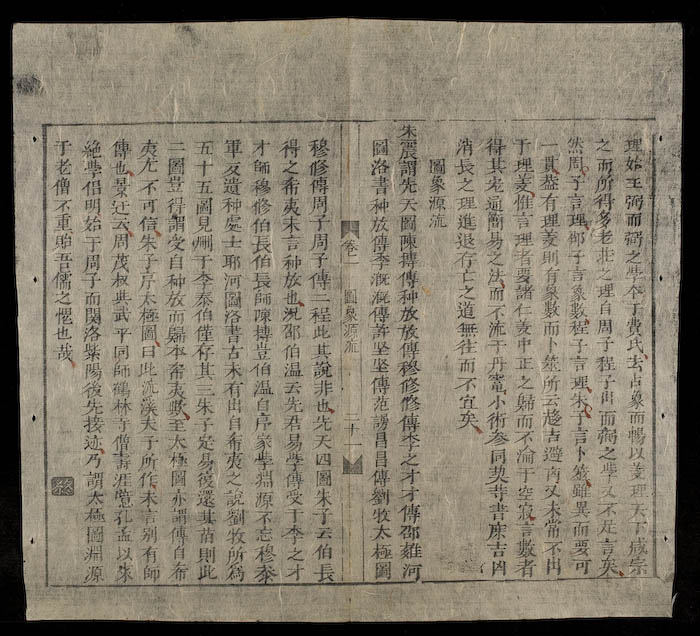 理始王弼而弼之學本于費氏去占象而暢以義理天下咸宗
之而所得多老莊之理自周子程子出而弼之學又不足言矣
然周子言理邵子言象數程子言理朱子言卜筮雖異而要可
一貫葢有理義則有象數而卜筮所云趨吉避凶又未常不出
于理義惟言理者要諸仁義中正之歸而不淪于空寂言數者
得其通簡易之法而不流于丹竈小術參同契等書庶吉凶
消長之理進退存亡之道無徃而不宜矣
圖象源流
朱震謂先天圖陳摶傳种放放傳穆修修傳李之才才傳邵雍河
圖洛書种放傳李溉溉傳許堅堅傳范諤昌昌傳劉牧太極圖
卷二 圖象源流 二十一
穆修傳周子周子傳二程此其說非也先天四圖朱子云伯長
得之希夷未言种放也況邵伯温云先君易學傳受于李之才
才師穆修伯長伯長師陳摶豈伯温自序家學淵源不忘穆叅
軍反遺种處士耶河圖洛書古未有出自希夷之說劉牧所爲
五十五圖見刪于李泰伯僅存其三朱子定易復還其則此
二圖豈得謂受自种放而歸本希夷至太極圖亦謂傳自希
夷尤不可信朱子序太極圖曰此濂溪夫子所作未言別有師
傳也景迂云周茂叔與武平同師鶴林寺僧壽涯孔孟以來
絶學倡明始于周子而關洛紫陽後先接迹乃謂太極圖淵源
于老僧不重貽吾儒之也哉